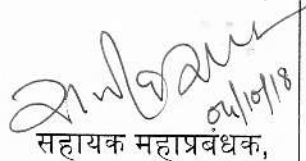 04/10/18
सहायक महाप्रबंधक,